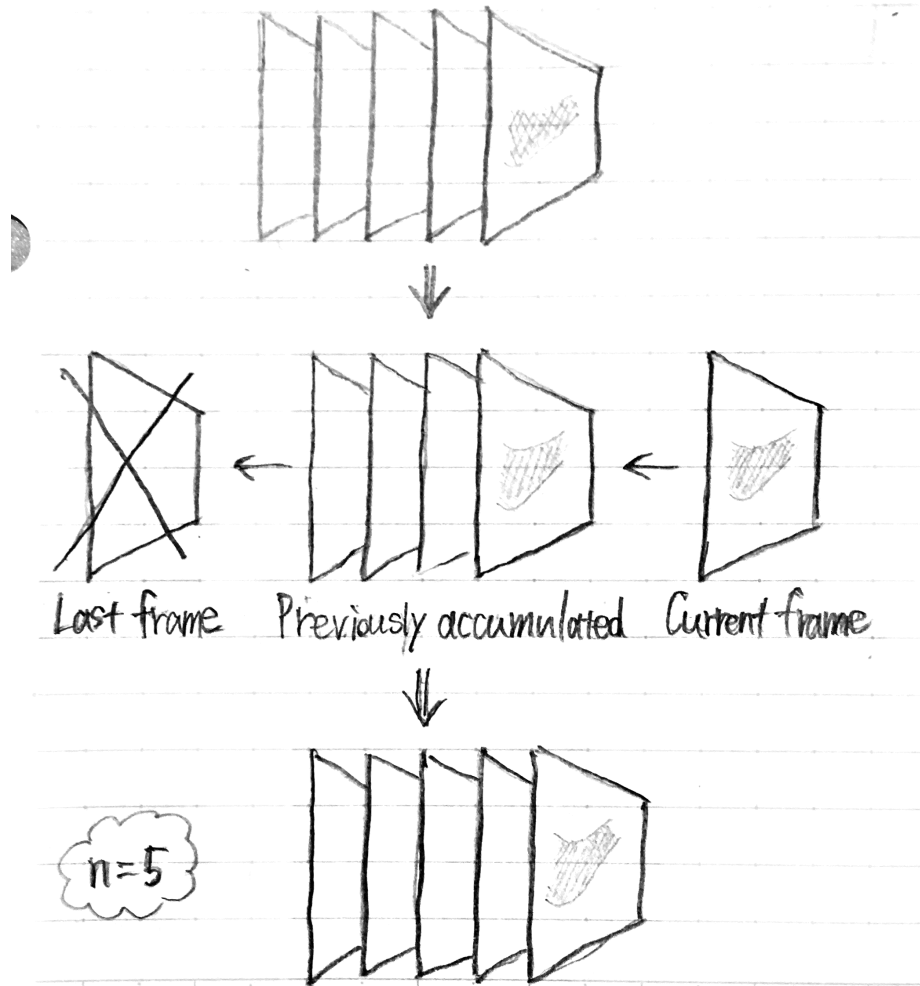 Last frame Previously accumulated Current frame
n=5